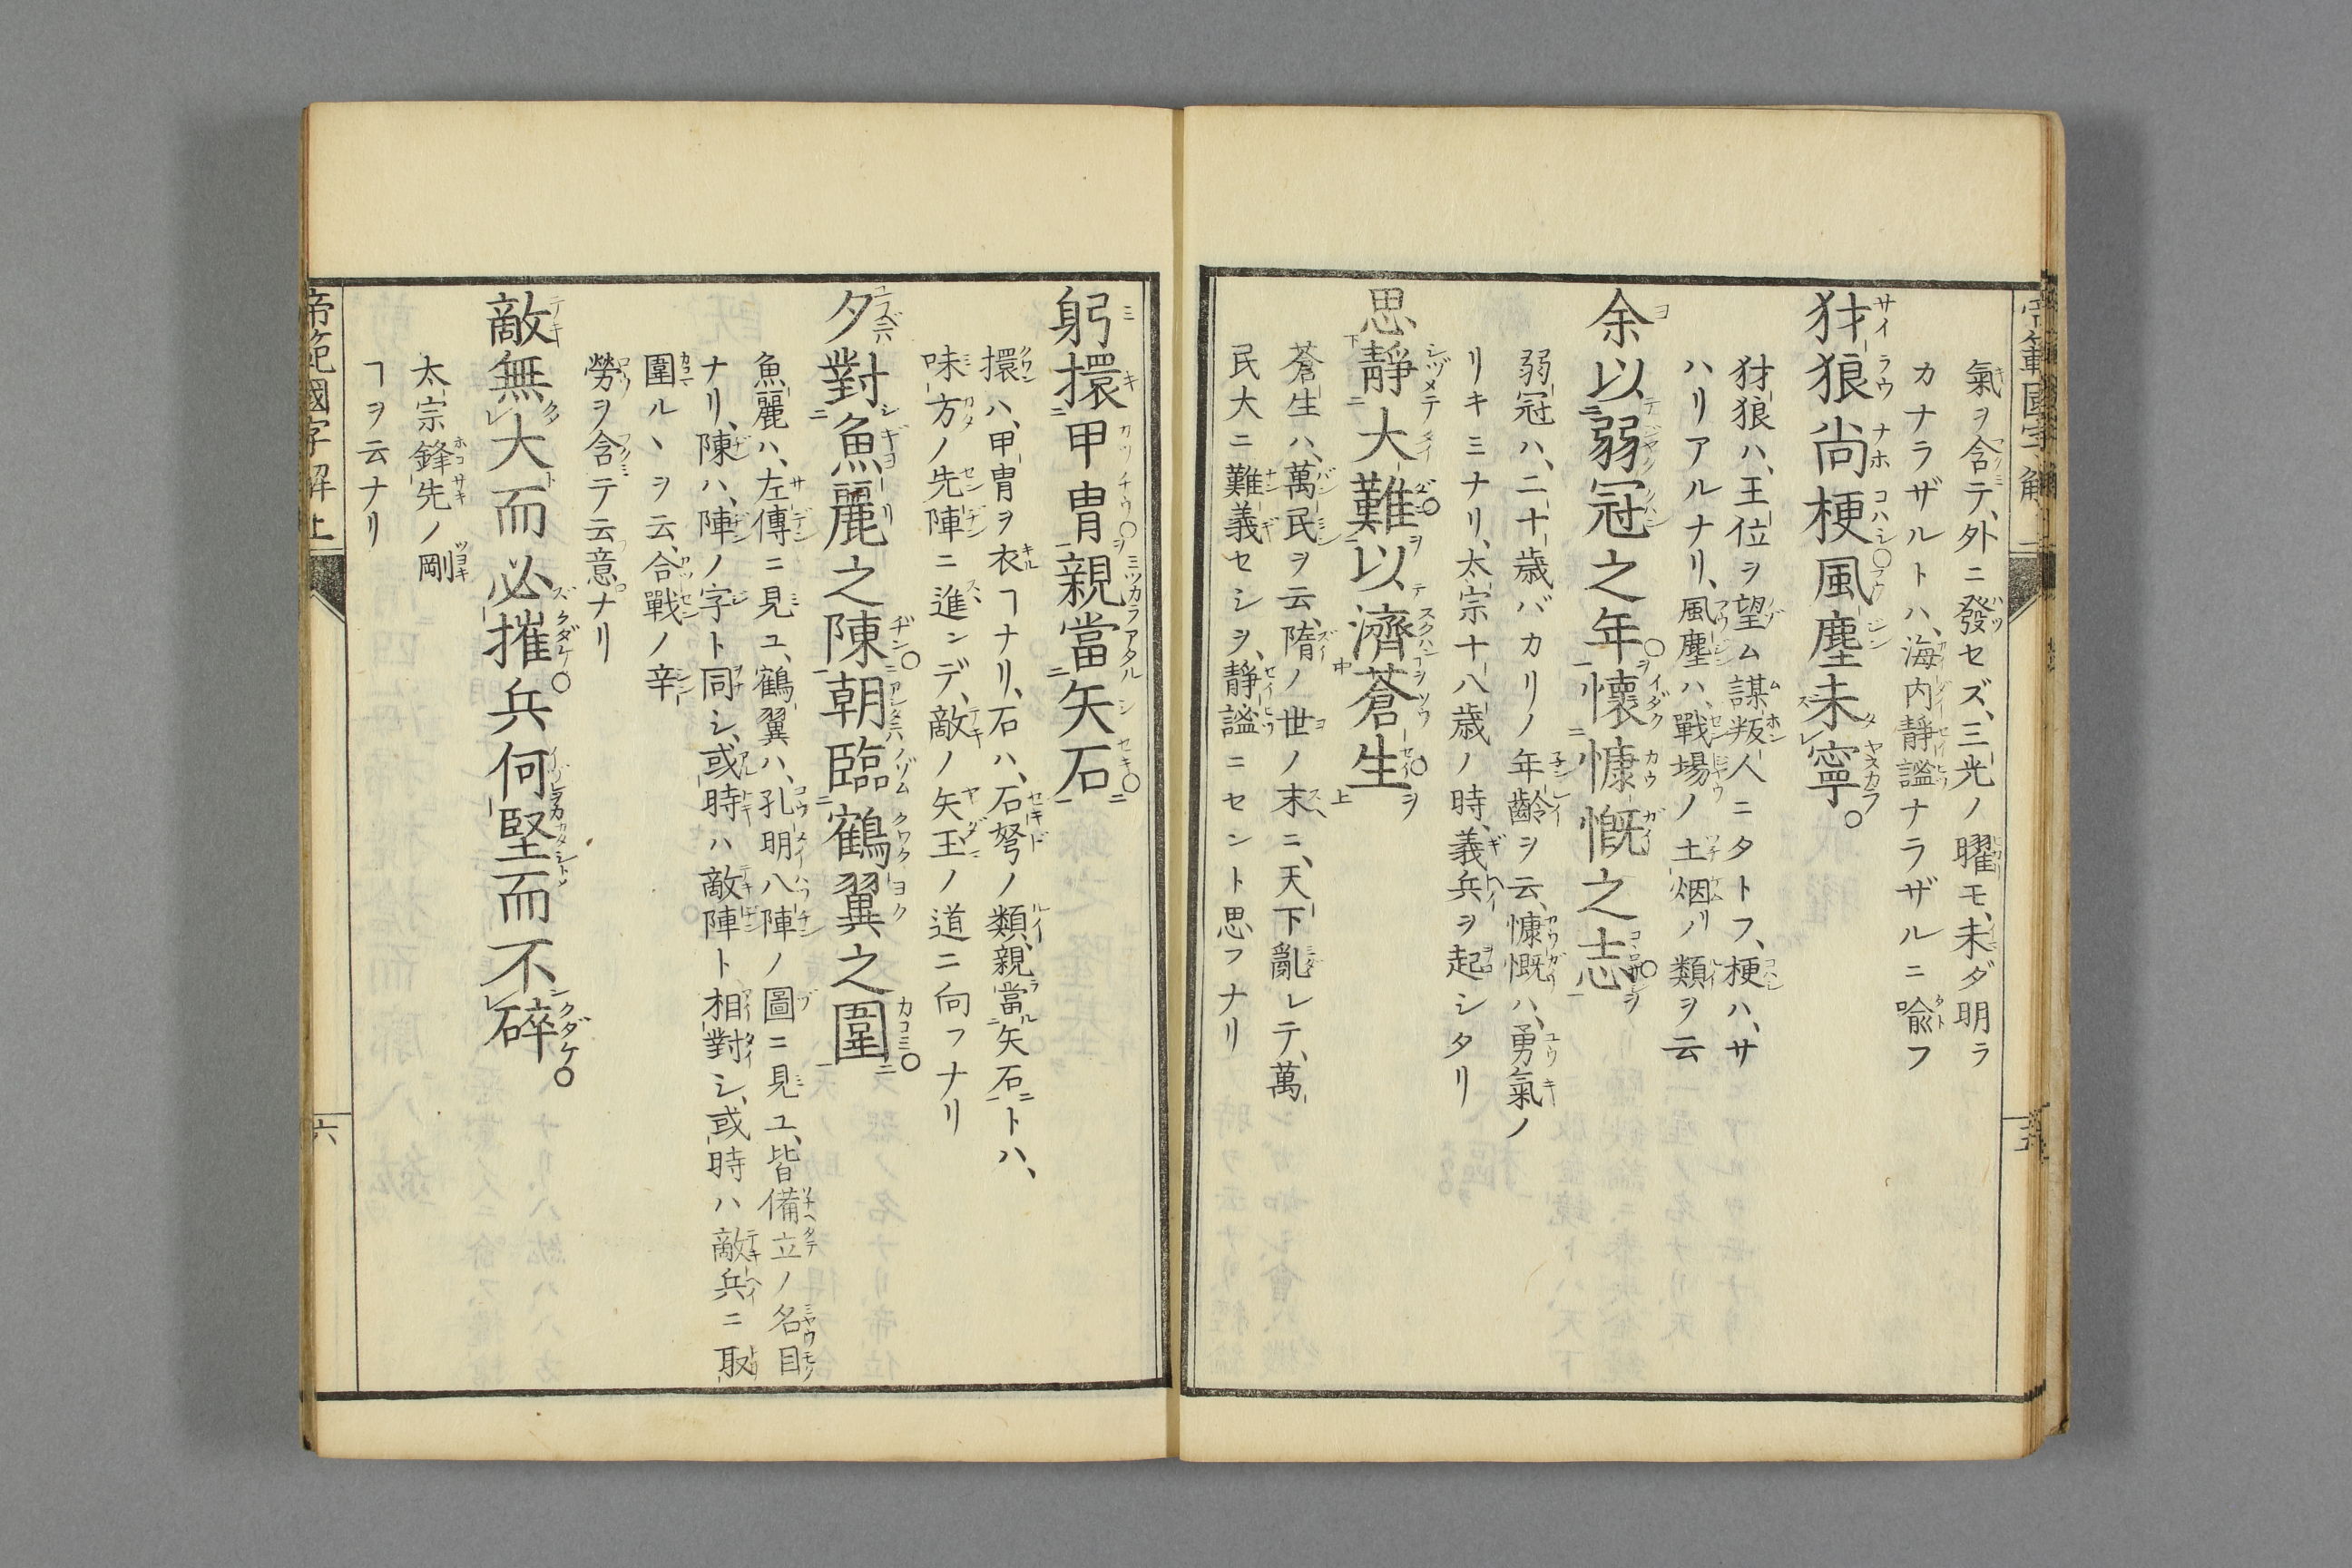 氣ヲ含テ、外ニ發セズ、三光ノ曜モ、未ダ明ラ
カナラザルトハ、海内靜謐ナラザルニ喩フ
犲狼尚梗風塵未寧。
犲狼ハ、王位ヲ望ム謀叛人ニタトフ、梗ハ、サ
ハリアルナリ、風塵ハ、戰場ノ土烟ノ類ヲ云
余以弱冠之年。懷慷慨之志。
弱冠ハ、二十歳バカリノ年齡ヲ云、慷慨ハ、勇氣ノ
リキミナリ、太宗十八歳ノ時、義兵ヲ起シタリ
思靜大難。以濟蒼生。
蒼生ハ、萬民ヲ云、隋ノ世ノ末ニ、天下亂レテ、萬
民大ニ難義セシヲ、靜謐ニセント思フナリ
躬擐甲冑。親當矢石。
擐ハ、甲冑ヲ衣ヿナリ、石ハ、石弩ノ類、親當矢石トハ、
味方ノ先陣ニ進ンデ、敵ノ矢玉ノ道ニ向フナリ
夕對魚麗之陳。朝臨鶴翼之圍。
魚麗ハ、左傳ニ見ユ、鶴翼ハ、孔明八陣ノ圖ニ見ユ、皆備立ノ名目
ナリ、陳ハ、陣ノ字ト同シ、或時ハ敵陣ト相對シ、或時ハ敵兵ニ取
圍ルヽヲ云、合戰ノ辛
勞ヲ含テ云意ナリ
敵無大而必摧。兵何堅而不碎。
太宗鋒先ノ剛
ヿヲ云ナリ
帝範國字解上
六